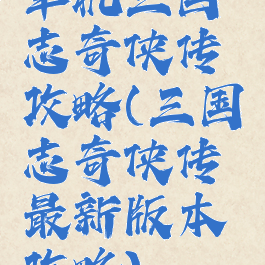 单机三国
志奇侠传
攻略(三国
志奇侠传
最新版本
攻略)